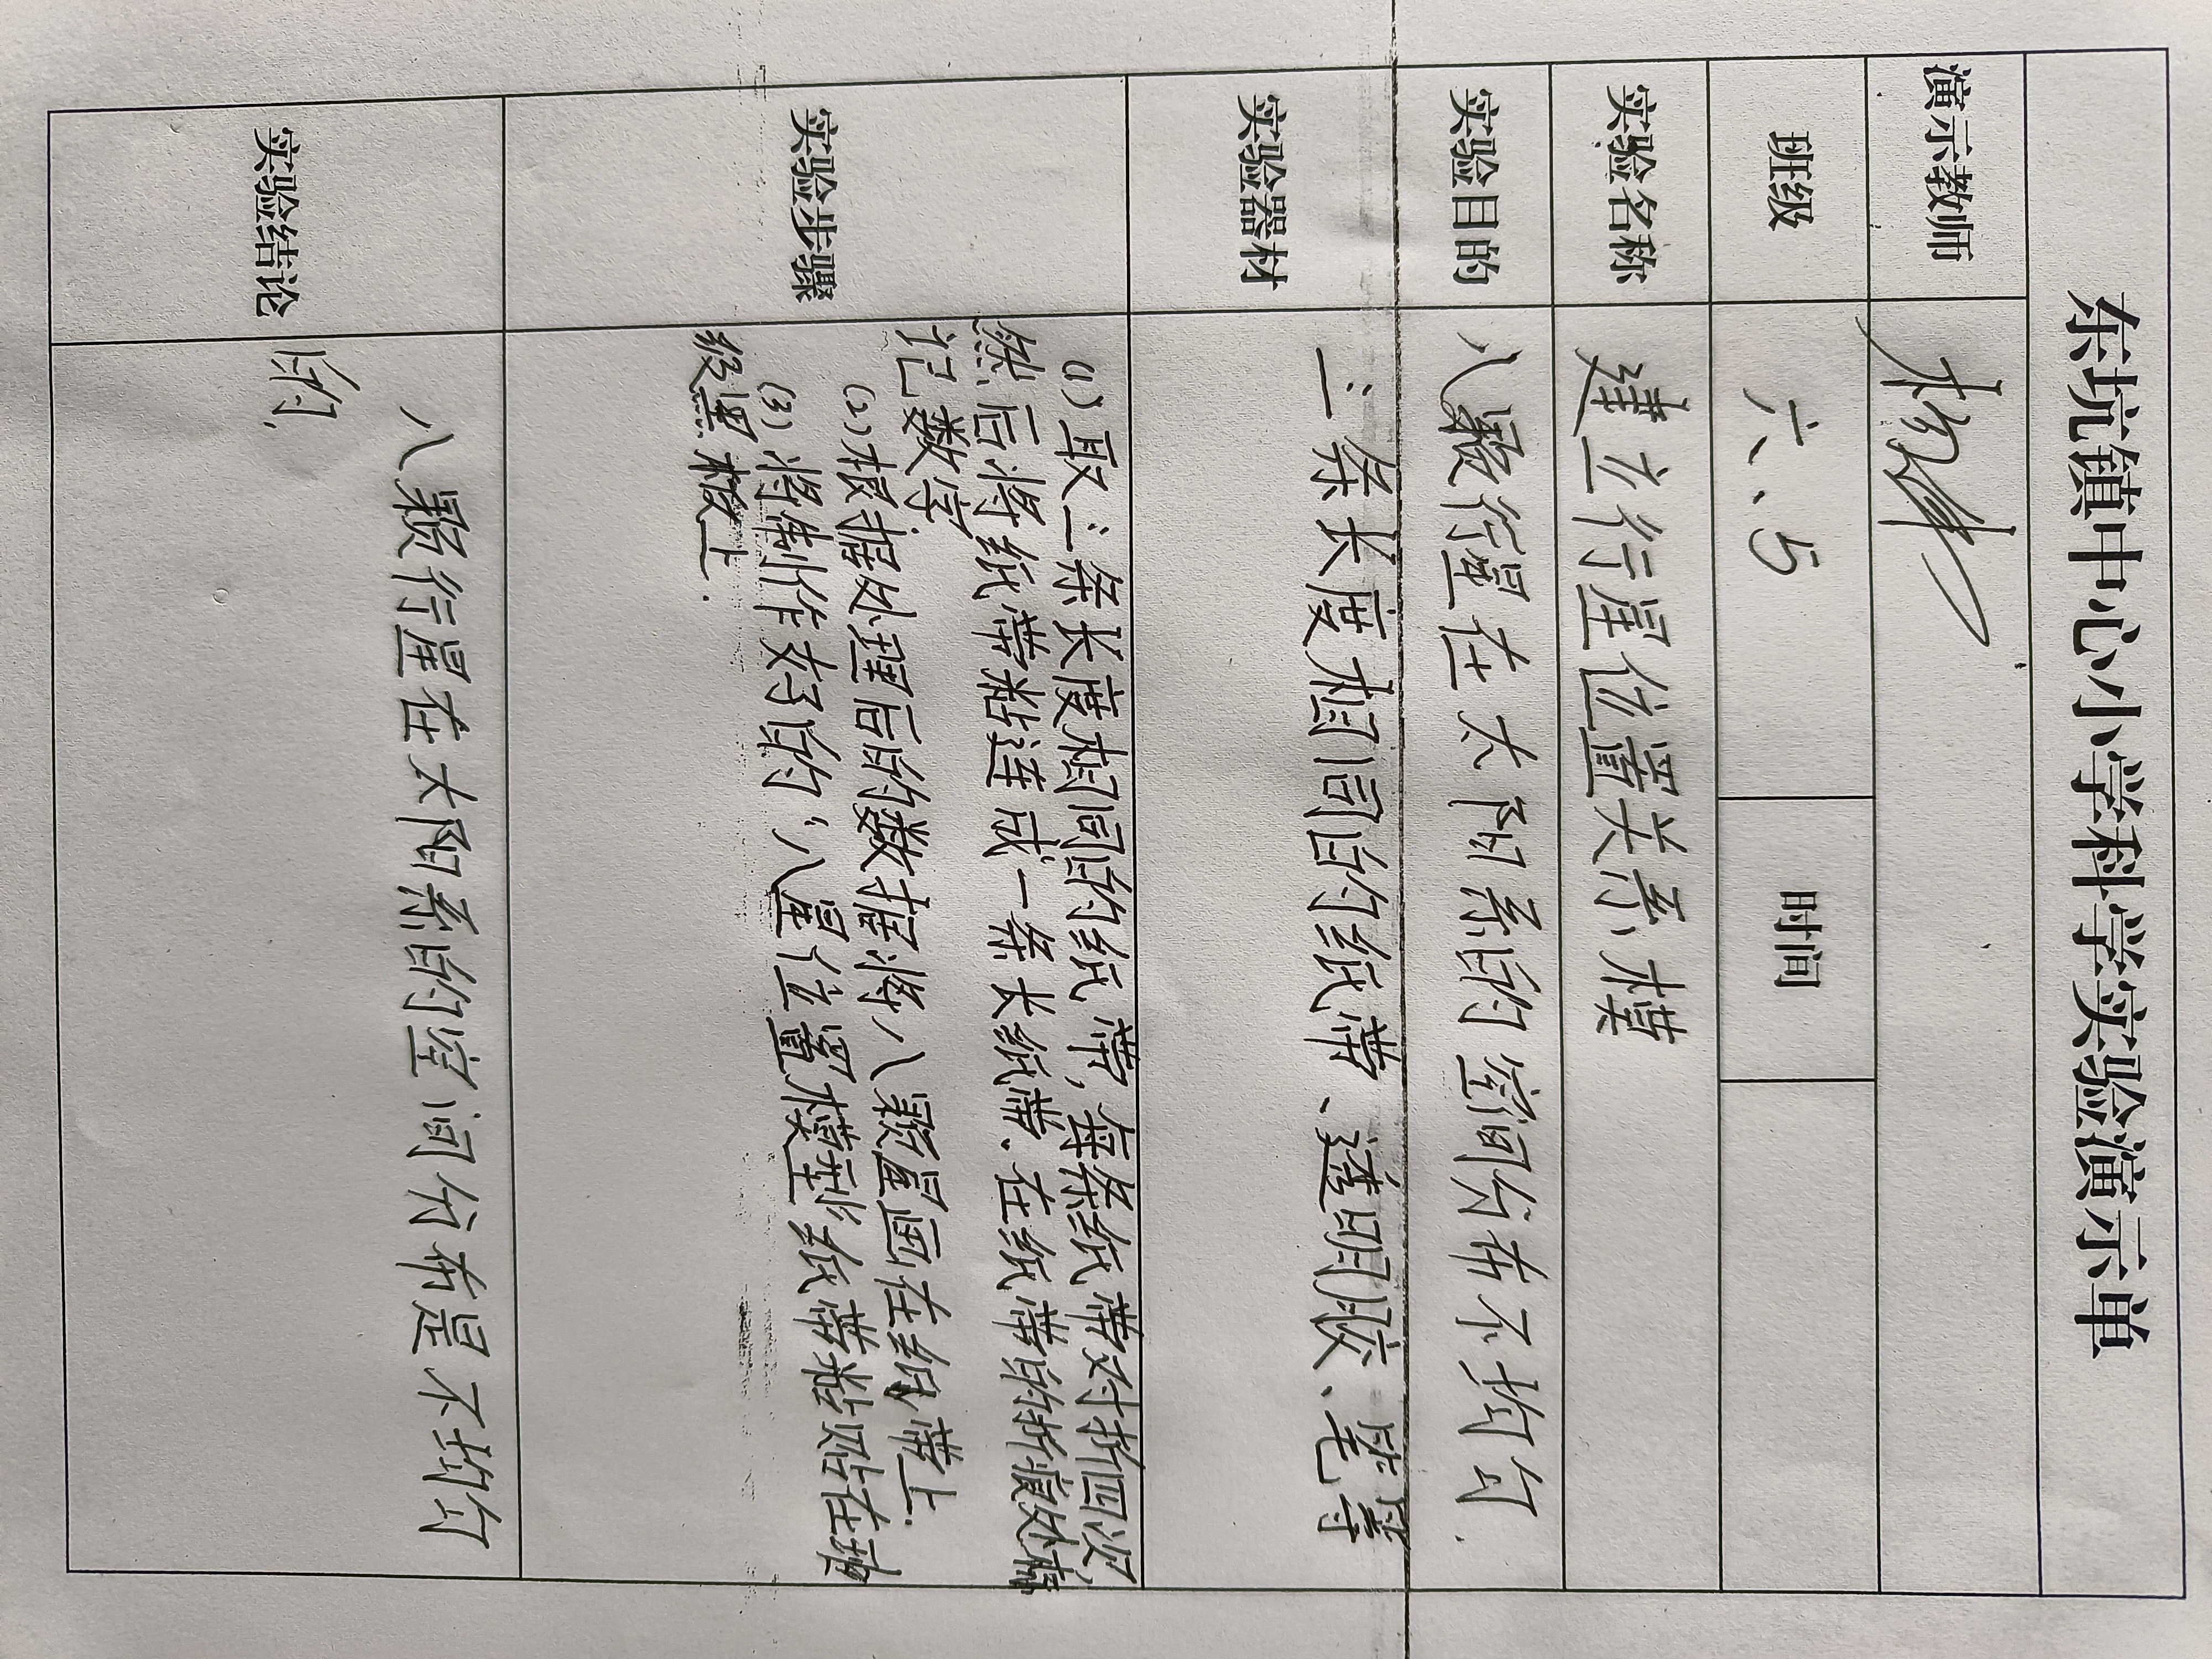 东坑镇中心小学科学实验演示单
演示教师
班级 六、5 时间
实验名称 建立行星位置关系模
实验目的 八颗行星在太阳系的空间分布不均匀.
实验器材 二条长度相同的纸带、透明胶、笔等
实验步骤
(1)取二条长度相同的纸带,每条纸带对折四次,
然后将纸带粘连成一条长纸带、在纸带的折痕处标
记数字.
(2)根据处理后的数据将八颗星画在纸带上.
(3)将制作好的“八星位置模型”纸带粘贴在班
级黑板上.
实验结论
八颗行星在太阳系的空间分布是不均匀
的.